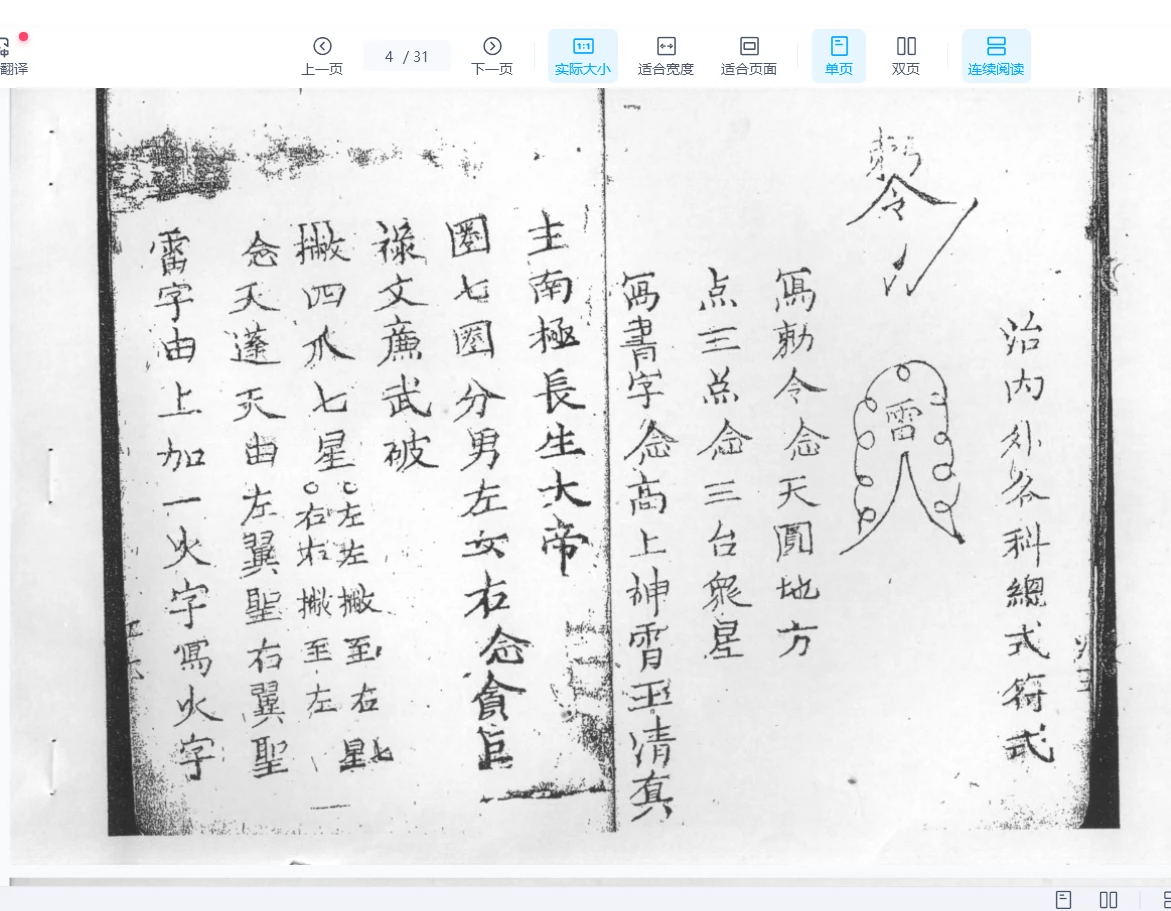 翻译
上一页
4 / 31
下一页
实际大小
适合宽度
适合页面
单页
双页
连续阅读
治内外各科總式符式
令
雷
寫勅令念天圓地方
点三点念三台衆星
寫書字念高上神霄玉清真
主南極長生大帝
圈七圈分男左女右念貪巨
祿文廉武破
撇四爪七星
左左撇至右
右右撇至左
星七
念天蓬天曲左翼聖右翼聖
雷字由上加一火字寫火字